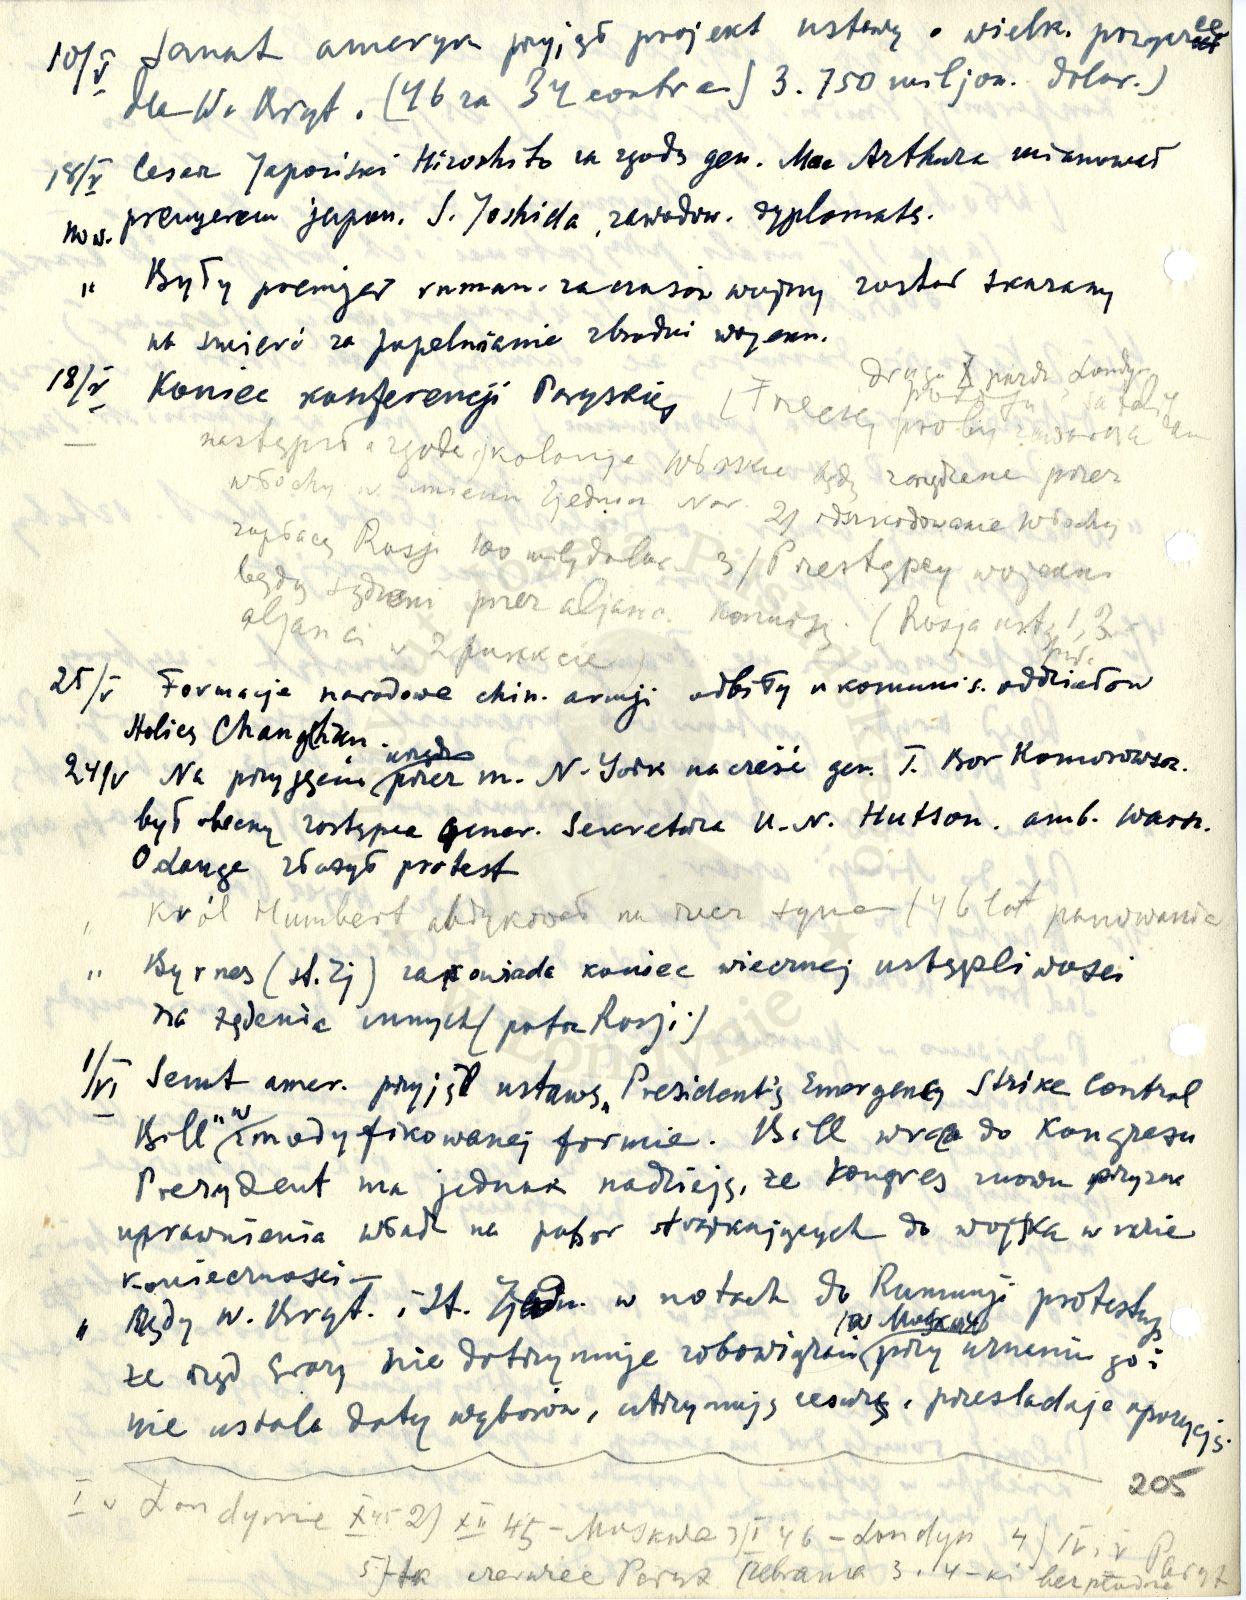 10/V Senat ameryk przyjął projekt ustawy o wielk. pożyczce
dla W. Bryt. (46 za 34 contra) 3.750 miljon. dolar.)
18/V Cesar Japoński Hiroshito za zgodą gen. Mac Arthura mianował
now. premjerem japon. S. Joshida, zawodow. dyplomatę.
" Były premjer ruman. za czasów wojny został skazany
na śmierć za popełnianie zbrodni wojenn.
18/V Koniec konferencji Paryskiej (Trzecej próby zawarcia
druga X pażdz Londyn
następiła zgoda 1) kolonje Włoskie będą rządzone przez
Włochy w imieniu Zjednocz Nar. 2) odszkodowanie Włochy
zapłacą Rosji 100 milj dolar. 3) Przestępcy wojenni
będą sądzeni przez aljanc. komisję. (Rosja ustąp. 1, 3
aljanci w 2 punkcie)
25/V Formacje narodowe chin. armji odbiły u komunis. oddziałów
stolicę Changchun.
24/V Na przyjęciu przez urząd m. N-York na cześć gen. T. Bor Komorowsk.
był obecny zastępca gener. Sekretarza U.N. Hutson. amb. Warsz.
O Lange złożył protest
" Król Humbert abdykował na rzecz syna (46 lat panowania
" Byrnes (St. Zj) zapowiada koniec wiecznej ustępliwości
na żądania innych (poza Rosji)
1/VI Senat amer. przyjął ustawę "President's Emergency Strike Control
Bill" w zmodyfikowanej formie. Bill wraca do Kongresu
Prezydent ma jednak nadzieję, że Kongres znowu przyzna
uprawnienia władz na pobor strajkujących do wojska w razie
konieczności—
" Rządy W. Bryt. i St. Zjedn. w notach do Rumunji protestują
że rząd Grozy nie dotrzymuje zobowiązań (w Moskwie) przy uznaniu go i
nie ustala daty wyborów, utrzymuję cenzurę, prześladuje opozycję.
205
I w Londynie X 45 2) XII 45 - Moskwa 3) I 46 - Londyn 4) IV i V Paryż
5) czerwiec Paryż (Zebrania 3. 4-ki bezpłodne